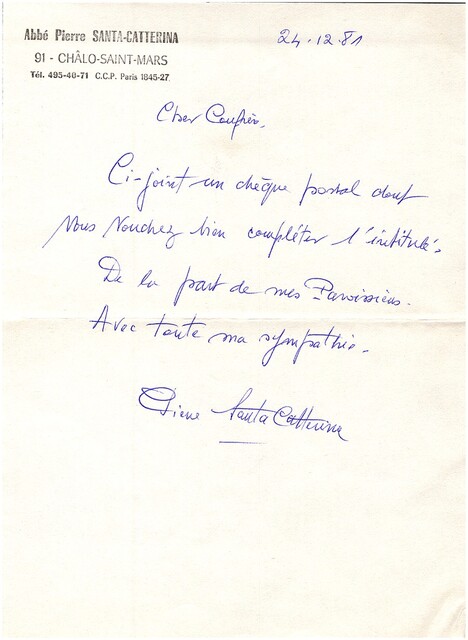 Abbé Pierre SANTA-CATTERINA
91 - CHÂLO-SAINT-MARS
Tél. 495-40-71 C.C.P. Paris 1845-27
24.12.81
Cher Confrère,
Ci-joint un chèque postal dont
Vous Voudrez bien compléter l'intitulé.
De la part de mes Paroissiens.
Avec toute ma sympathie.
Pierre Santa Catterina